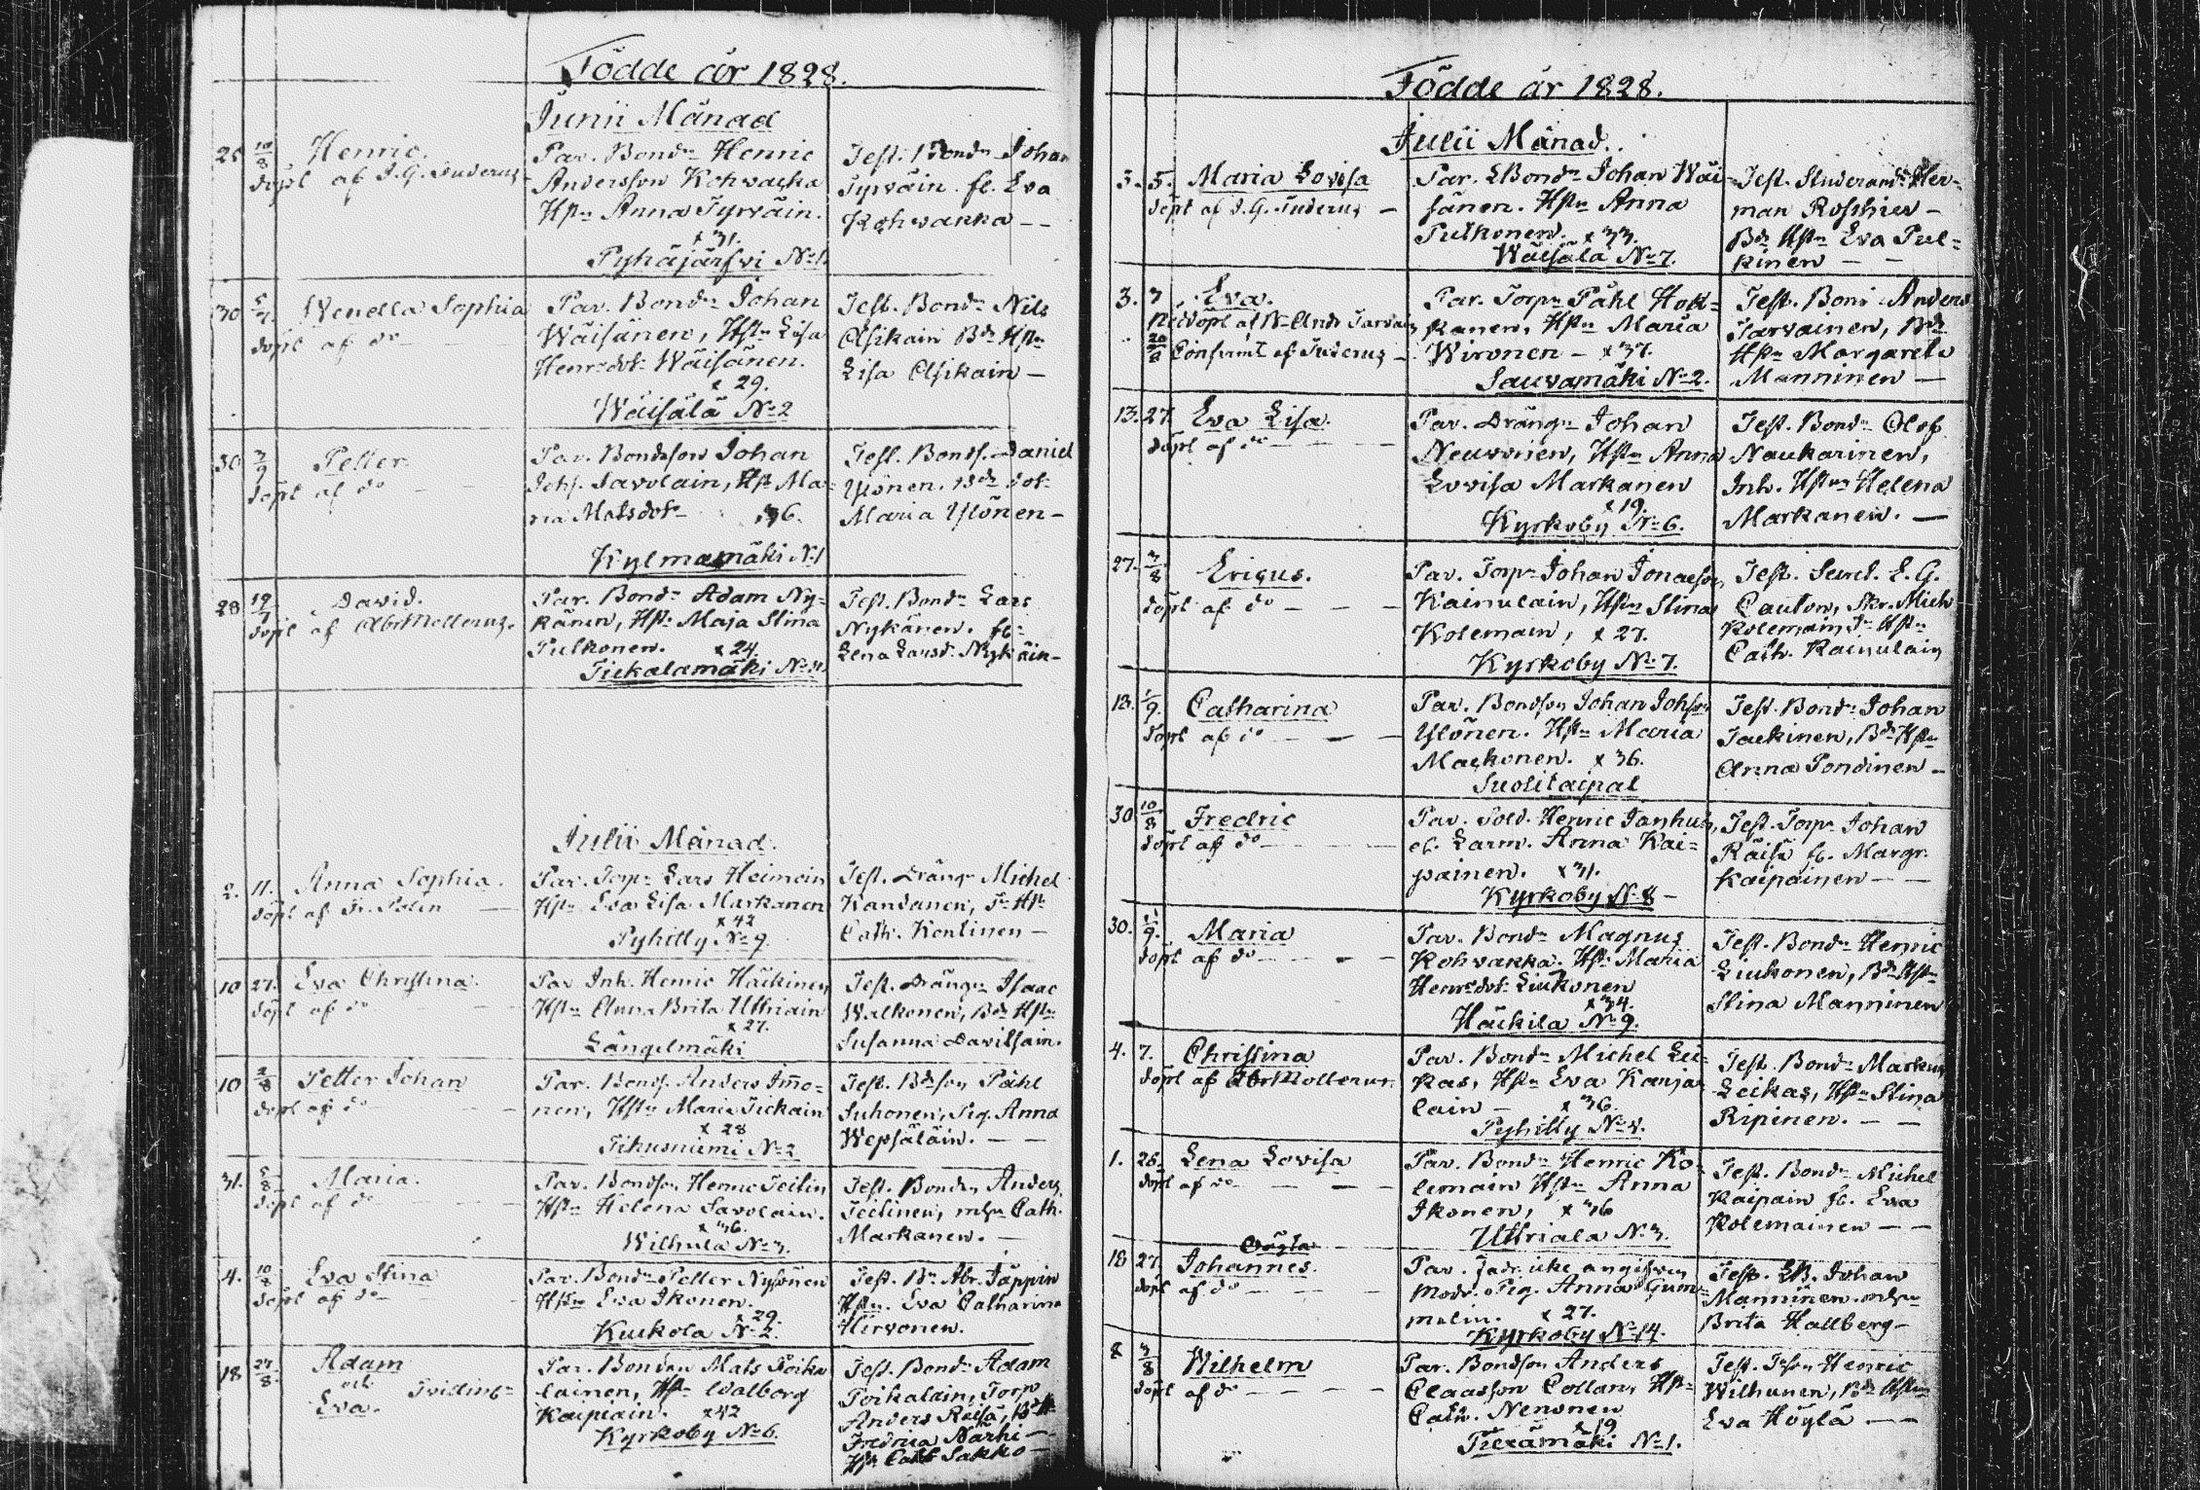 Födde år 1828.
Junii Månad
25 10/8 Henric.
döpt af J. G. Tuderus
Par. Bonden Henric
Andersson Kohvacka
Hstn Anna Tyrväin.
x 31.
Pyhäjärfvi No 1.
Test. Bonden Johan
Tyrväin. fl. Eva
Kohvakka - -
30 5/7. Wendla Sophia
döpt af do
Par. Bonden Johan
Wäisänen, Hstn Lisa
Henrsdotr Wäisänen.
x 29.
Wäisälä No 2
Test. Bonden Nils
Asikain Bd Hstn
Lisa Asikain -
30 7/9 Petter
döpt af do
Par. Bondeson Johan
Johs. Savolain, Hst. Ma-
ria Matsdotr 36.
Kylmamäki No 1
Test. Bonds. Daniel
Ylönen. Bds dotr
Maria Ylönen -
28 19/7 David.
döpt af Abr Molleruz.
Par. Bonden Adam Ny-
känen, Hst. Maja Stina
Pulkonen. x 24.
Tiekalamäki No 4.
Test. Bonden Lars
Nykänen. fl.
Lena Larsd. Nykäin-
Julii Månad.
2. 11. Anna Sophia.
döpt af Fr. Polén
Par. Torpn Lars Heimoin
Hstn Eva Lisa Markanen
x 42
Pyhitty No 9.
Test. Drängn Michel
Kandanen, Tn Hstn
Cath. Kontinen -
10 27. Eva Christina.
döpt af do
Par Inh. Henric Häikinen
Hstn Anna Brita Uttriain
x 27.
Längelmäki
Test. Drängn Isaac
Walkonen, Bds Hstn
Susanna Davitsain.
10 2/8 Petter Johan
döpt af do
Par. Bonds. Anders Imo-
nen, Hstn Maria Tickain
x 28
Tihusniemi No 2
Test. Bdeson Påhl
Suhonen, Pig. Anna
Wepsäläin. - -
31. 5/8 Maria.
döpt af do
Par. Bondson Henric Teitin
Hstn Helena Savolain.
x 36.
Wilhula No 3.
Test. Bonden Anders
Teitinen, mhn Cath.
Markanen. -
4. 10/8 Eva Stina
döpt af do
Par. Bonden Petter Nysönen
Hstn Eva Ikonen.
x 29.
Kuikola No 2.
Test. Bn Abr. Jäppin
Hstn. Eva Catharina
Hirvonen.
18 24/8 Adam
och Tvillinr
Eva.
Par. Bonden Mats Poika
lainen, Hst. Walborg
Kaipiain. x 42
Kyrkoby No 6.
Test. Bonden Adam
Poikalain, Torp.
Anders Räisä, Bd H
Fredrica Närhi -
Hst Cath Sakko -
Födde år 1828.
Julii Månad.
3. 5. Maria Lovisa
döpt af J. G. Tuderus -
Par. LBonden Johan Wäi-
sänen. Hstn Anna
Pulkonen. x 33.
Wäisälä No 7.
Test. Studerande Her-
man Roschier -
Bds Hstn Eva Pul-
kinen - -
3. 7 Eva.
Nöddöpt af Bn Ands Tarvain
20/8 Confirmt af Tuderus -
Par. Torpn Påhl Hott-
kanen, Hstn Maria
Wironen - x 37.
Sauvamäki No 2.
Test. Bond Anders
Tarvainen, Bds
Hstn Margareta
Manninen -
13. 27. Eva Lisa.
döpt af do
Par. Drängn Johan
Neuvonen, Hstn Anna
Lovisa Markanen
x 19.
Kyrkoby No 6.
Test. Bonden Olof
Naukarinen,
Inh. Hstn Helena
Markanen. -
27. 3/8 Ericus.
döpt af do - - -
Par. Torpn Johan Jonaeson
Kainulain, Hstn Stina
Kolemain, x 27.
Kyrkoby No 7.
Test. Secret. E. G.
Cauton, Skr. Mich
Kolemain, Tn Hstn
Cath. Kainulain
13. 1/9. Catharina
döpt af do - - -
Par. Bondson Johan Johson
Ylönen. Hstn Maria
Mackonen. x 36.
Suolitaipal
Test. Bonden Johan
Jackinen, Bds Hstn
Anna Pondinen -
30 10/8 Fredric
döpt af do
Par. Sold. Henric Janhun,
ol. Larm. Anna Kai-
painen. x 31.
Kyrkoby No 8 -
Test. Torpn Johan
Räisä fl. Margr.
Kaipainen - -
30. 11/9. Maria
döpt af do - - - -
Par. Bonden Magnus
Kohvakka. Hst. Maria
Henrsdotr Liukonen
x 34.
Häckilä No 9.
Test. Bonden Henric
Liukonen, Bds Hstn
Stina Manninen
4. 7. Christina
döpt af Abr Mollerus.
Par. Bonden Michel Lei-
kas, Hstn Eva Kanja-
lain - x 36.
Pyhitty No 4.
Test. Bonden Markus
Leikas, Hstn Stina
Ripinen. - -
1. 26. Lena Lovisa
döpt af do - - -
Par. Bonden Henric Ko-
lemain Hstn Anna
Ikonen, x 36
Uttriala No 3.
Test. Bonden Michel
Kaipain fl. Eva
Kolemainen - -
18 27. Oägta
Johannes.
döpt af do - - -
Par. Fadr. icke angifven
Modr. Pig. Anna Gum-
melin. x 27.
Kyrkoby No 14.
Test. LB. Johan
Manninen. mhn
Brita Hallberg -
8 3/8 Wilhelm
döpt af do - - -
Par. Bondson Anders
Claasson Collan, Hst-
Cath. Nenonen
x 19
Piexämäki No 1.
Test. Tson Henric
Wilhunen, Bds Hstn
Eva Höylä - -